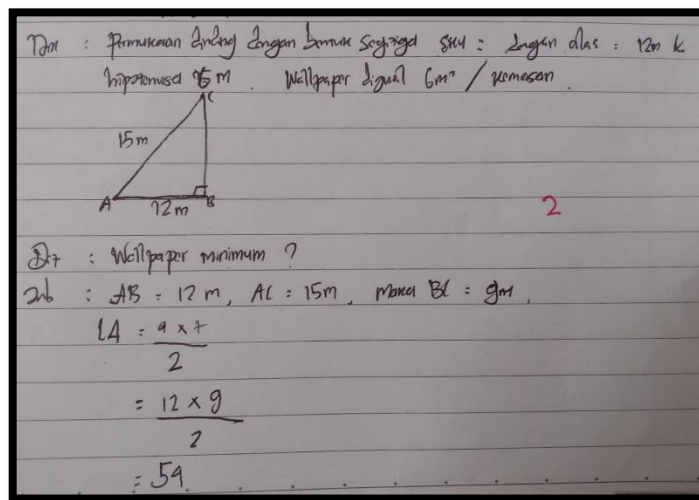 Dik : Permukaan dinding dengan bentuk segitiga siku = dengan alas = 12m &
hipotenusa 15 m . Wallpaper dijual 6m² / kemasan
C
15m
A
12m
B
2
Dit : Wallpaper minimum ?
Jwb : AB = 12 m, AC = 15m, maka BC = 9m,
LΔ = a x t
2
= 12 x 9
2
= 54